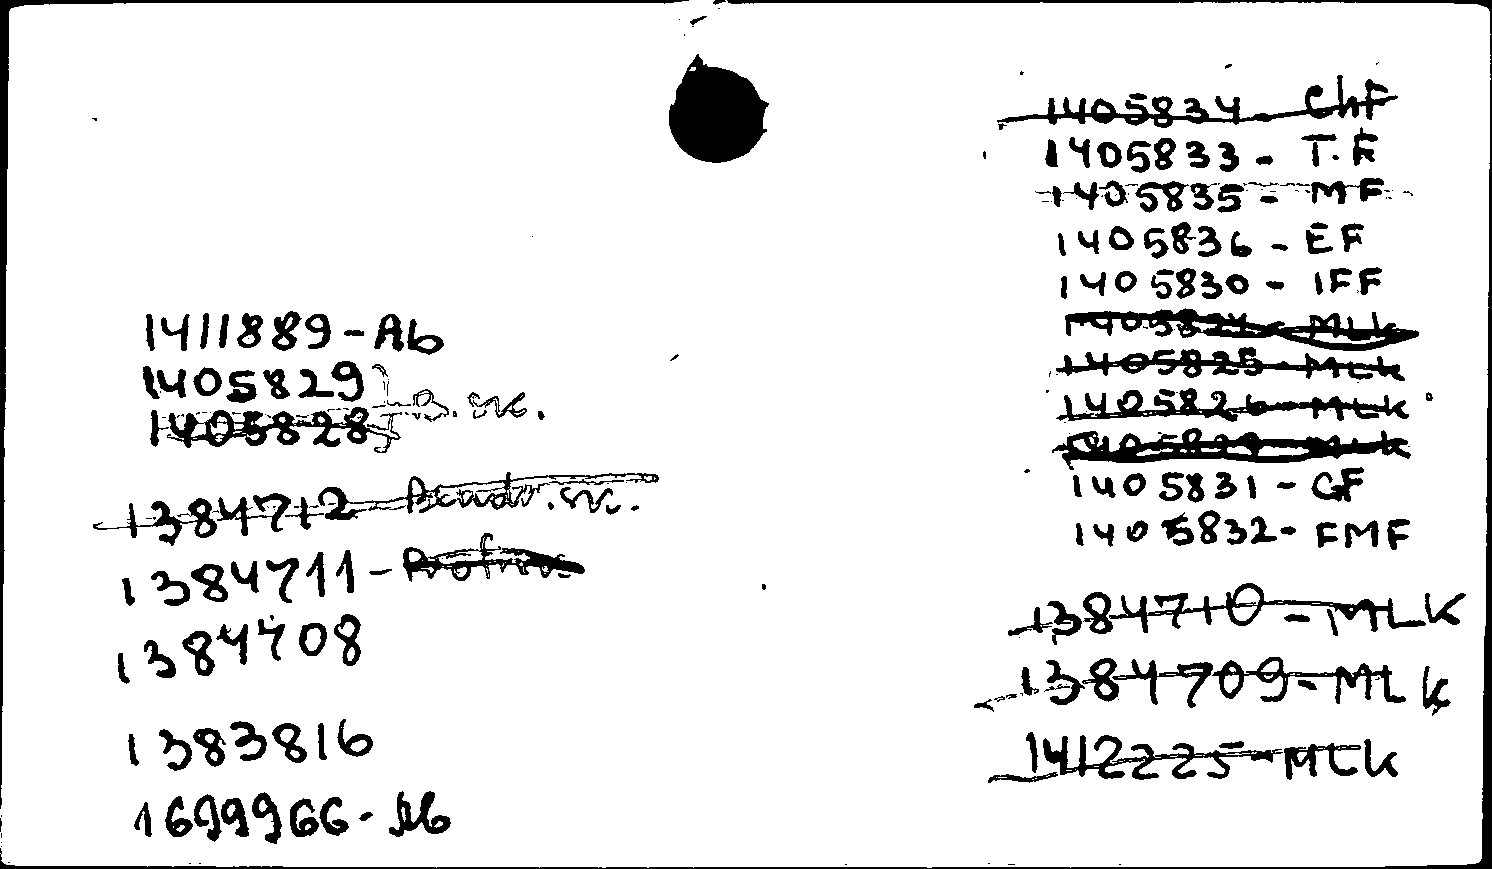 1411889-Ab
1405829
1405828 } B. svc.
1384712
1384711-
1384708
1383816
1699966-Ab
1405834- ChF
1405833- T.F
1405835- MF
1405836- EF
1405830- IFF
MLK
1405825- MLK
1405826- MLK
MLK
1405831- GF
1405832- FMF
1384710-MLK
1384709-MLK
1412225-MLK